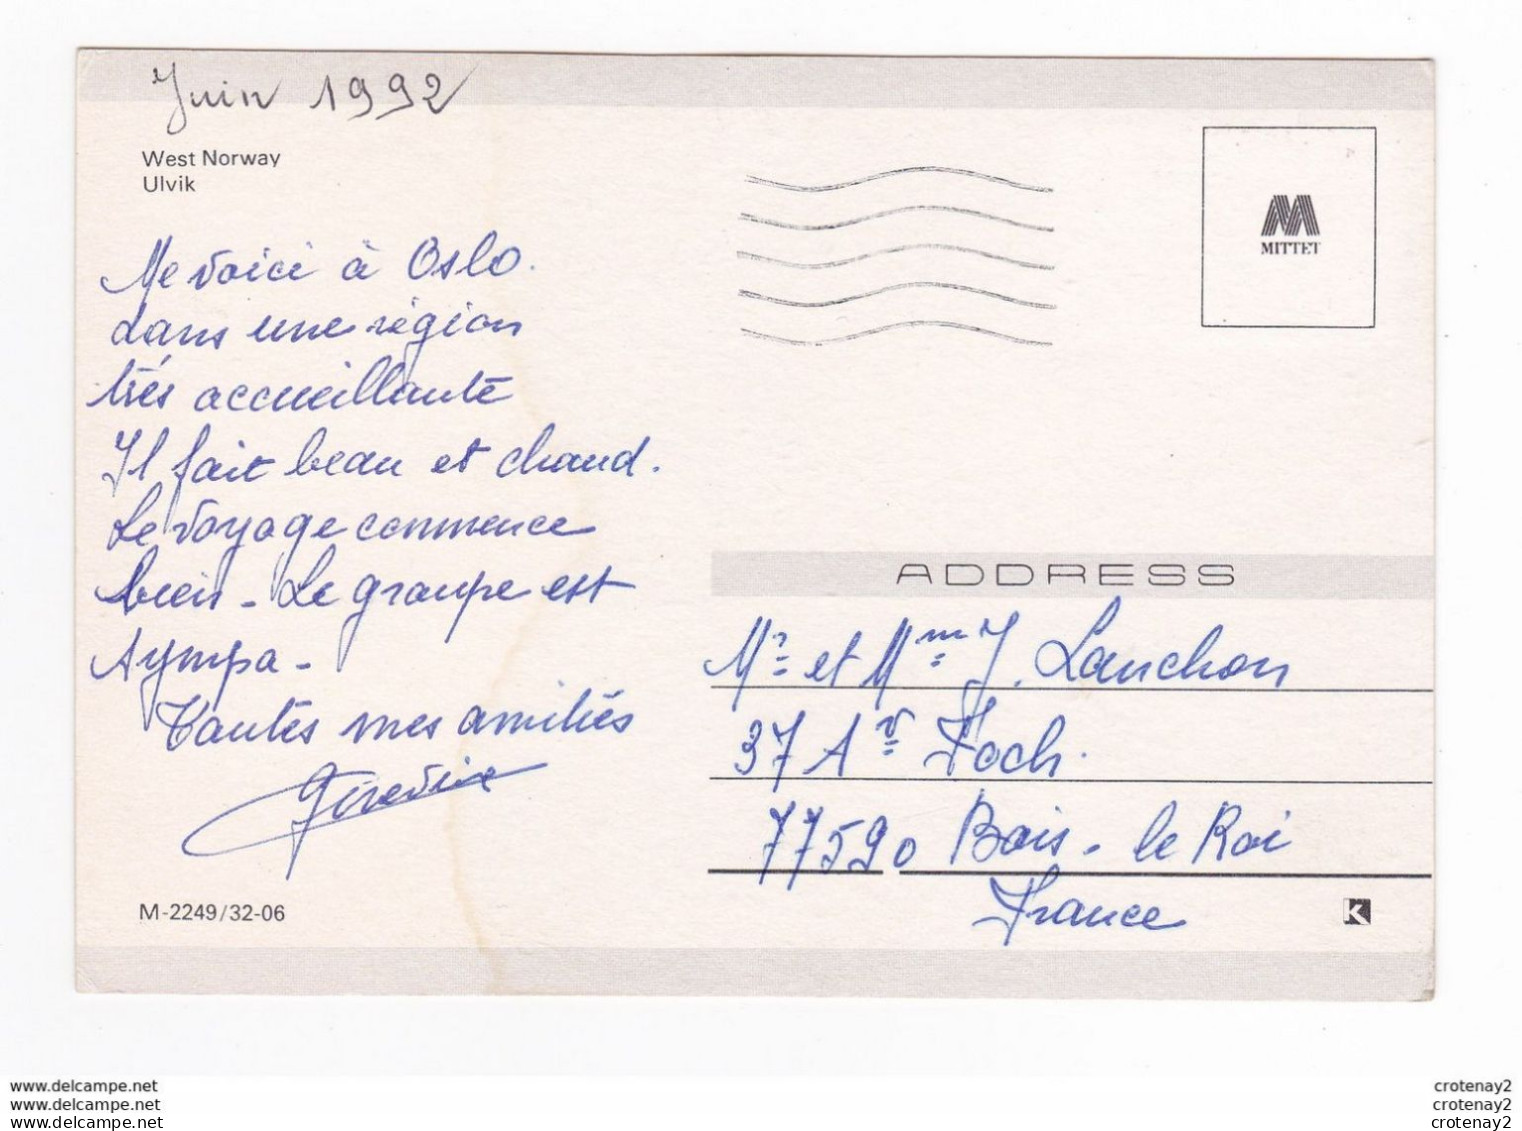 Juin 1992
West Norway
Ulvik
Me voici à Oslo.
dans une région
très accueillante
Il fait beau et chaud.
Le voyage commence
bien - Le groupe est
sympa -
Toutes mes amitiés
M-2249/32-06
MITTET
ADDRESS
Mr et Mme J. Lanchon
37 Av Foch.
77590 Bois - le Roi
France
K
www.delcampe.net
www.delcampe.net
www.delcampe.net
crotenay2
crotenay2
crotenay2